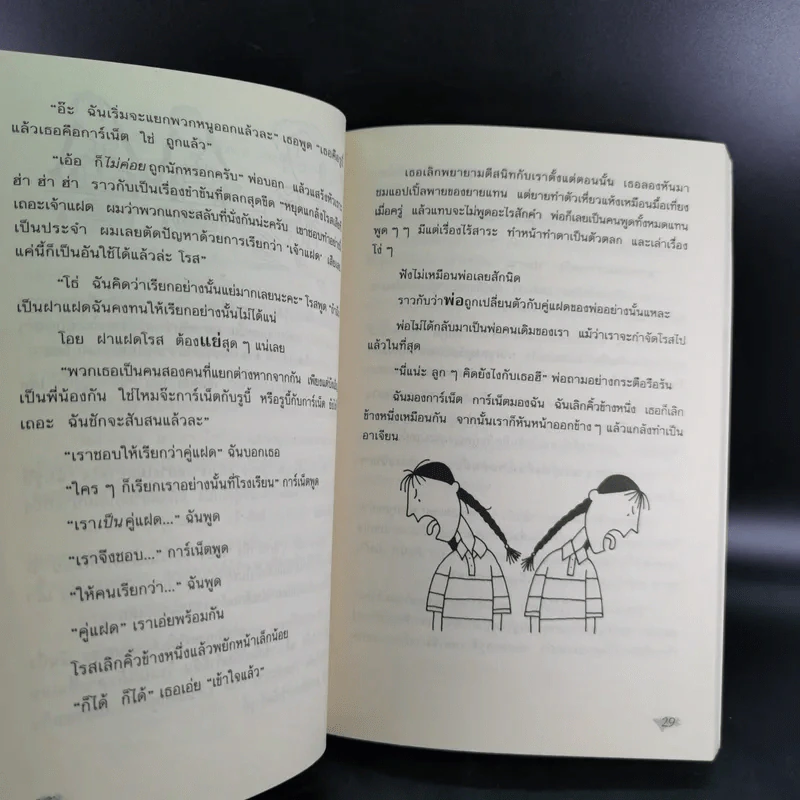 "อ๊ะ ฉันเริ่มจะแยกพวกหนูออกแล้วละ" เธอพูด "เธอคือรูบี้
แล้วเธอคือการ์เน็ต ใช่ ถูกแล้ว"
"เอ้อ ก็ไม่ค่อยถูกนักหรอกครับ" พ่อบอก แล้วแสร้งหัวเราะ
ฮ่า ฮ่า ฮ่า ราวกับเป็นเรื่องขำขันที่ตลกสุดขีด "หยุดแกล้งโรส
เถอะเจ้าแฝด ผมว่าพวกแกจะสลับที่นั่งกันน่ะครับ เขาชอบทำอย่างนี้
เป็นประจำ ผมเลยตัดปัญหาด้วยการเรียกว่า 'เจ้าแฝด'
แค่นี้ก็เป็นอันใช้ได้แล้วล่ะ โรส"
"โธ่ ฉันคิดว่าเรียกอย่างนั้นแย่มากเลยนะคะ" โรสพูด
เป็นฝาแฝดฉันคงทนให้เรียกอย่างนั้นไม่ได้แน่
โอย ฝาแฝดโรส ต้องแย่สุด ๆ แน่เลย
"พวกเธอเป็นคนสองคนที่แยกต่างหากจากกัน เพียงแต่
เป็นพี่น้องกัน ใช่ไหมจ๊ะการ์เน็ตกับรูบี้ หรือรูบี้กับการ์เน็ต
เถอะ ฉันชักจะสับสนแล้วละ"
"เราชอบให้เรียกว่าคู่แฝด" ฉันบอกเธอ
"ใคร ๆ ก็เรียกเราอย่างนั้นที่โรงเรียน" การ์เน็ตพูด
"เราเป็นคู่แฝด..." ฉันพูด
"เราจึงชอบ..." การ์เน็ตพูด
"ให้คนเรียกว่า..." ฉันพูด
"คู่แฝด" เราเอ่ยพร้อมกัน
โรสเลิกคิ้วข้างหนึ่งแล้วพยักหน้าเล็กน้อย
"ก็ได้ ก็ได้" เธอเอ่ย "เข้าใจแล้ว"
เธอเลิกพยายามตีสนิทกับเราตั้งแต่ตอนนั้น เธอลองหันมา
ชมแอปเปิ้ลพายของยายแทน แต่ยายทำตัวเหี่ยวแห้งเหมือนมื้อเที่ยง
เมื่อครู่ แล้วแทบจะไม่พูดอะไรสักคำ พ่อก็เลยเป็นคนพูดทั้งหมดแทน
พูด ๆ ๆ มีแต่เรื่องไร้สาระ ทำหน้าทำตาเป็นตัวตลก และเล่าเรื่อง
โง่ ๆ
ฟังไม่เหมือนพ่อเลยสักนิด
ราวกับว่าพ่อถูกเปลี่ยนตัวกับคู่แฝดของพ่ออย่างนั้นแหละ
พ่อไม่ได้กลับมาเป็นพ่อคนเดิมของเรา แม้ว่าเราจะกำจัดโรสไป
แล้วในที่สุด
"นี่แน่ะ ลูก ๆ คิดยังไงกับเธอฮึ" พ่อถามอย่างกระตือรือร้น
ฉันมองการ์เน็ต การ์เน็ตมองฉัน ฉันเลิกคิ้วข้างหนึ่ง เธอก็เลิก
ข้างหนึ่งเหมือนกัน จากนั้นเราก็หันหน้าออกข้าง ๆ แล้วแกล้งทำเป็น
อาเจียน
29